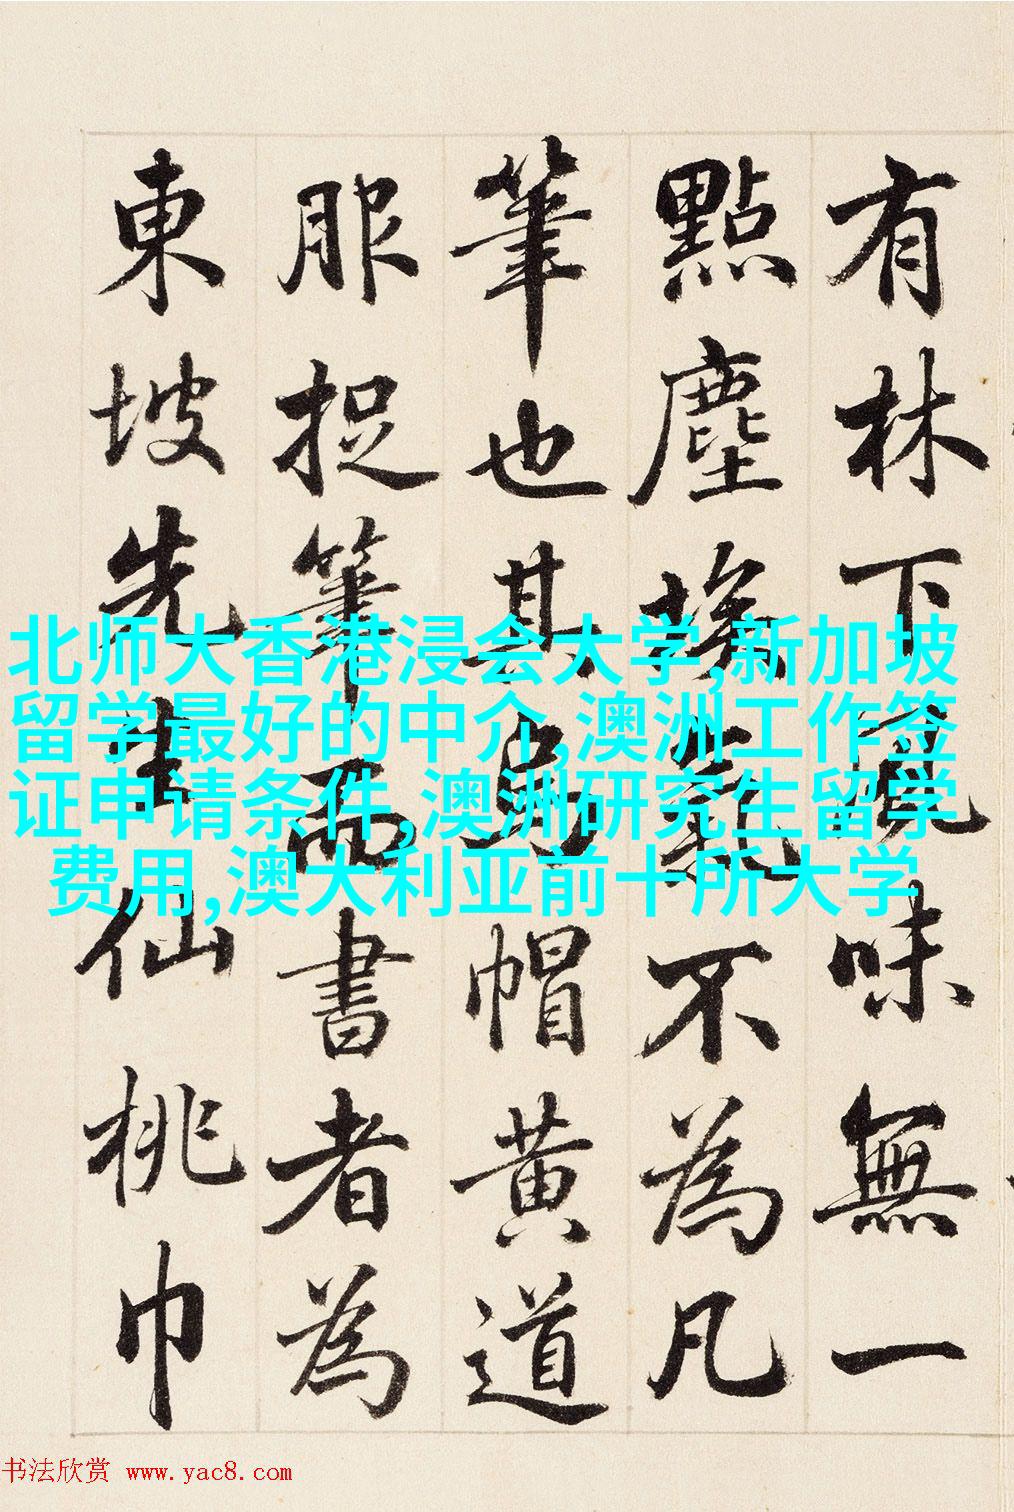 有林下風味無一
點塵埃氣不為凡
筆也其烏帽黃道
服捉筆而書者為
東坡先生仙桃巾
北师大香港浸会大学,新加坡
留学最好的中介,澳洲工作签
证申请条件,澳洲研究生留学
费用,澳大利亚前十所大学
书法欣赏 www.yac8.com